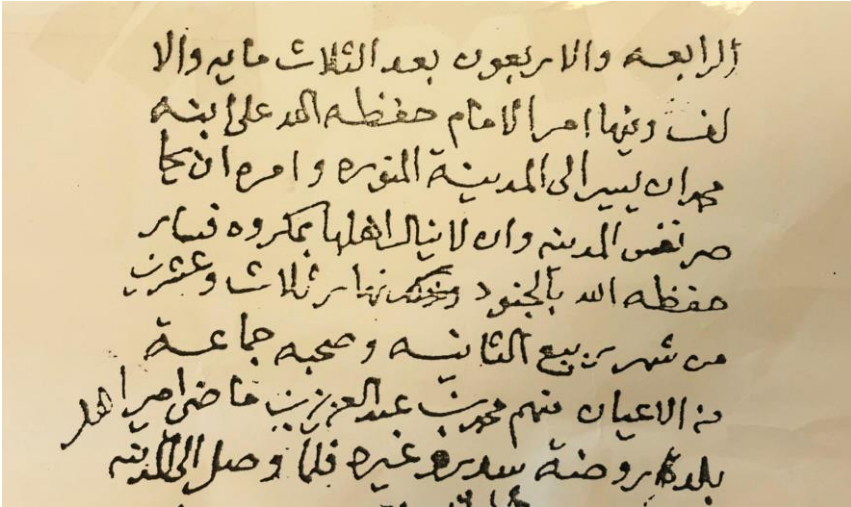 الرابعه والاربعون بعد الثلاث مايه والا
لف وفيها امر الامام حفظه الله على ابنه
محمد ان يسير الى المدينة المنوره وامره ان يحا
صر نفس المدينه وان لا ينال اهلها بمكروه فسار
حفظه الله بالجنود نهار ثلاث وعشرين
من شهر ربيع الثانيه وصحبه جماعة
من الاعيان منهم محمد بن عبد العزيز بن ماضي امير اهل
بلدة روضة سدير وغيره فلما وصل الى المدينه